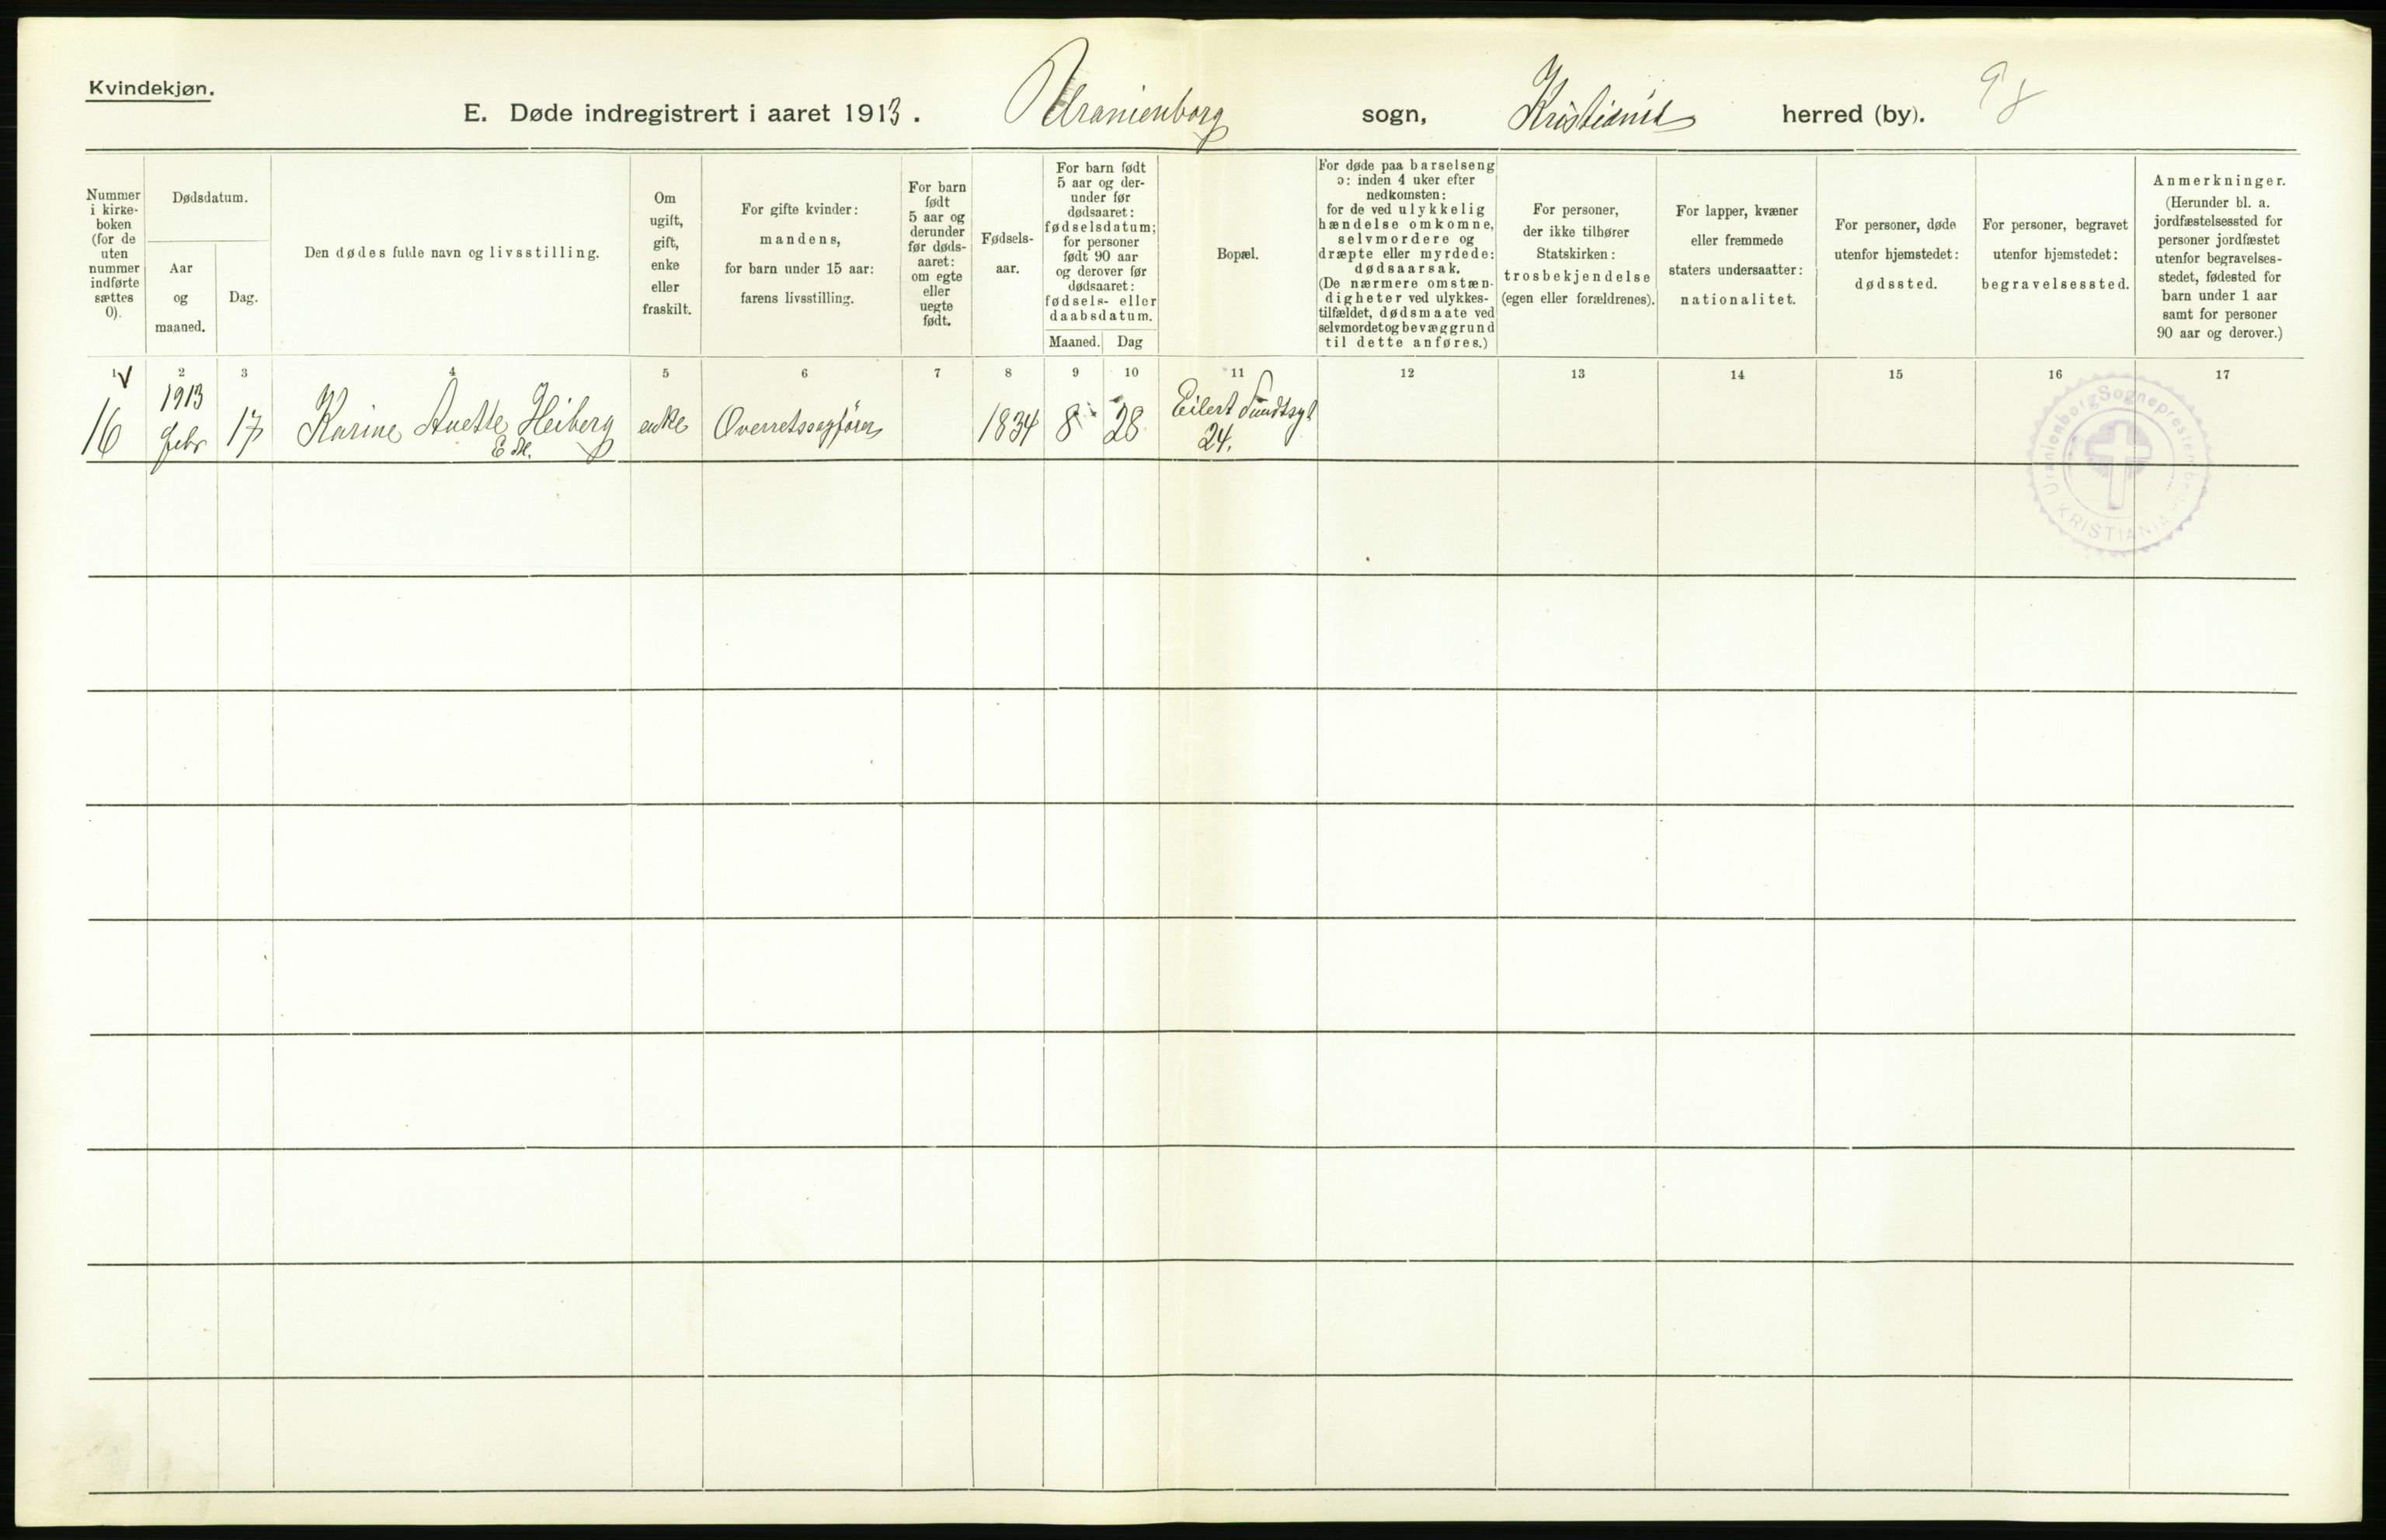 Kvindekjøn.
E. Døde indregistrert i aaret 1913. Uranienborg sogn, Kristiania herred (by). 98
Nummer
i kirke-
boken
(for de
uten
nummer
indførte
sættes
0).
Dødsdatum.
Aar
og
maaned.
Dag.
Den dødes fulde navn og livsstilling.
Om
ugift,
gift,
enke
eller
fraskilt.
For gifte kvinder:
mandens,
for barn under 15 aar:
farens livsstilling.
For barn
født
5 aar og
derunder
før døds-
aaret:
om egte
eller
uegte
født.
Fødsels-
aar.
For barn født
5 aar og der-
under før
dødsaaret:
fødselsdatum;
for personer
født 90 aar
og derover før
dødsaaret:
fødsels- eller
daabsdatum.
Maaned. Dag
Bopæl.
For døde paa barselseng
ɔ: inden 4 uker efter
nedkomsten;
for de ved ulykkelig
hændelse omkomne,
selvmordere og
dræpte eller myrdede:
dødsaarsak.
(De nærmere omstæn-
digheter ved ulykkes-
tilfældet, dødsmaate ved
selvmordet og bevæggrund
til dette anføres.)
For personer,
der ikke tilhører
Statskirken:
trosbekjendelse
(egen eller forældrenes).
For lapper, kvæner
eller fremmede
staters undersaatter:
nationalitet.
For personer, døde
utenfor hjemstedet:
dødssted.
For personer, begravet
utenfor hjemstedet:
begravelsessted.
Anmerkninger.
(Herunder bl. a.
jordfæstelsessted for
personer jordfæstet
utenfor begravelses-
stedet, fødested for
barn under 1 aar
samt for personer
90 aar og derover.)
1 2 3 4 5 6 7 8 9 10 11 12 13 14 15 16 17
16 1913 febr 17 Karine Anette Heiberg enke Overretssagfører 1834 8 28 Eilert Sundtsgt
24.
Uranienborg Sogneprestembede
KRISTIANIA